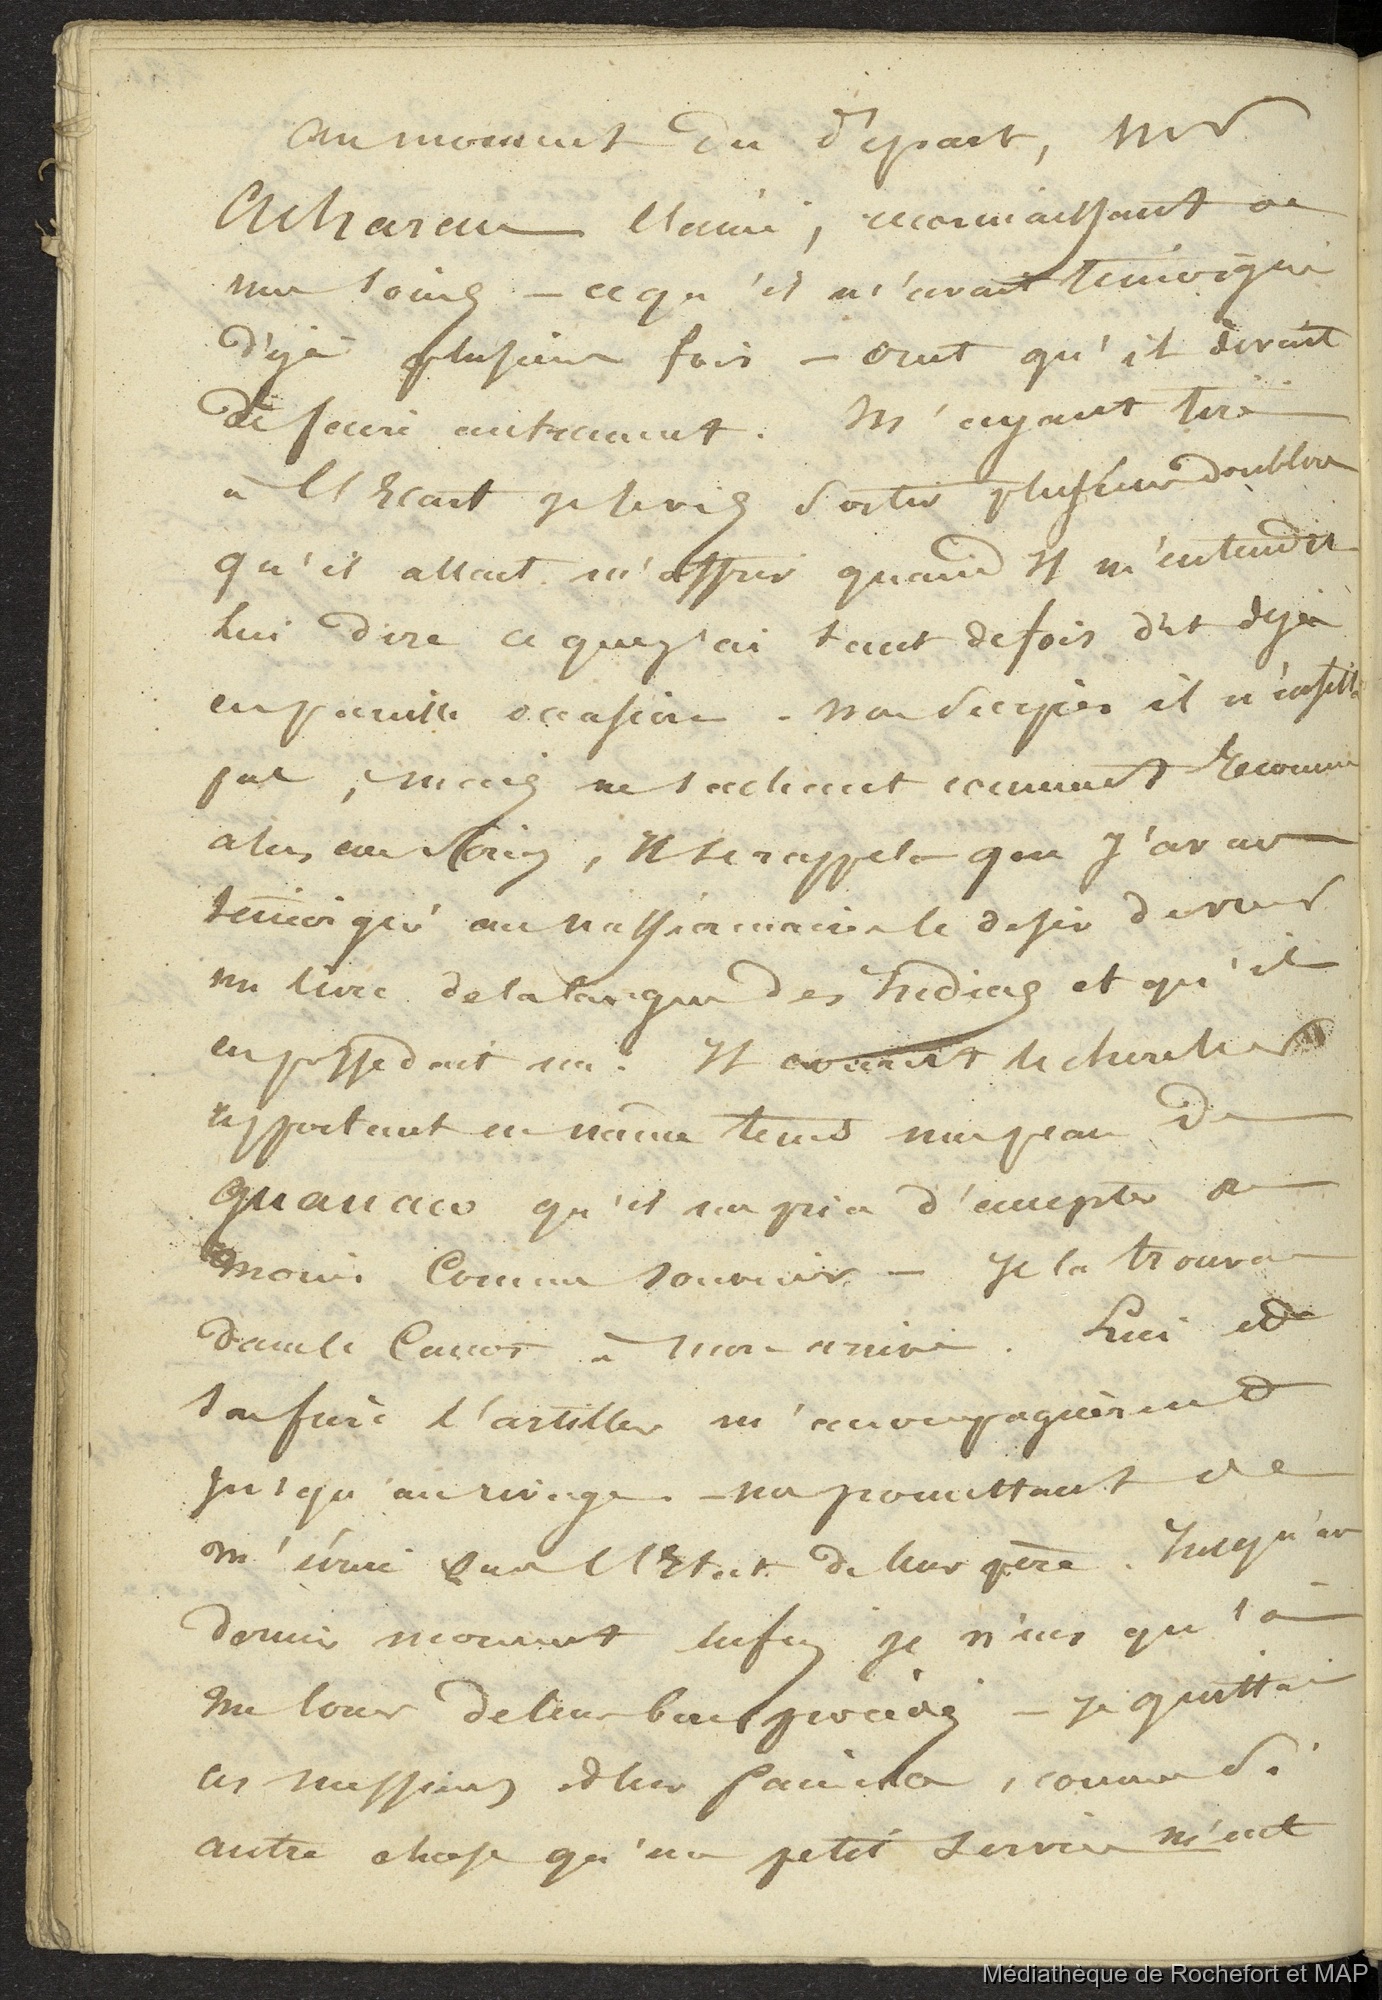 au moment du départ, Mr
Acharan l'ainé, reconnaissant de
mes soins – ce qu'il m'avait témoigné
déja plusieurs fois – crut qu'il devait
le faire autrement. M'ayant tiré
à l'Ecart je le vis sortir plusieurs doublons
qu'il allait m'offrir quand Il m'entendit
lui dire ce que j'ai tant de fois dit deja
en pareille occasion. il n'insista
pas, mais ne sachant comment Reconnaitre
alors mes soins, Il se rappela que J'avais
témoigné au missionnaire le desir de voir
un livre de la langue des Indiens et qu'il
en possedait un. Il courut le chercher
apportant en même tems une peau de
guanaco qu'il me pria d'accepter au
moins comme souvenir – Je la trouvai
dans le canot à mon arrivée. Lui et
son frère l'artilleur m'accompagnèrent
jusqu'au rivage – me promettant de
m'écrire sur l'Etat de leur père. Jusqu'au
dernier moment enfin je n'eus qu'à
me louer de leurs bons procédés – Je quittai
ces messieurs et leur famille, comme si
autre chose qu'un petit service m'eut